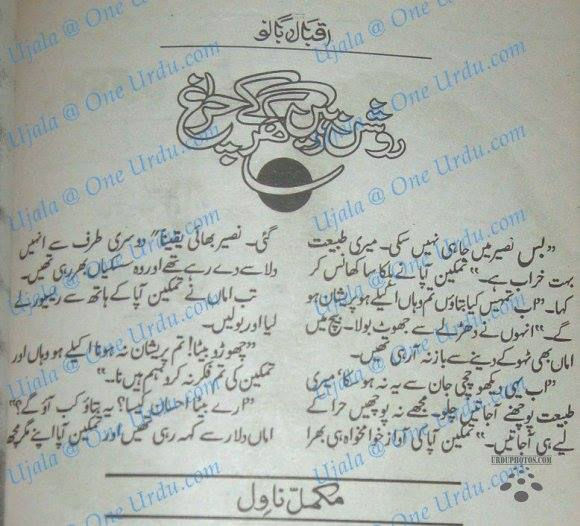 اقبال بانو
روشن رہیں گھر کے چراغ
”بس نصیر میں جا ہی نہیں سکی۔ میری طبیعت
بہت خراب ہے۔“ تمکین آپا نے ہلکا سا کھانس کر
کہا۔ ”اب تمہیں کیا بتاؤں تم وہاں اکیلے ہو پریشان ہو
گے۔“ انہوں نے دھڑلے سے جھوٹ بولا۔ بیچ میں
اماں بھی ٹہوکے دینے سے باز نہ آ رہی تھیں۔
”اب یہی دیکھو چچی جان سے یہ نہ ہو سکا کہ میری
طبیعت پوچھنے آ جاتیں چلو۔ مجھے نہ پوچھیں حرا کے
لیے ہی آ جاتیں۔“ تمکین آپا کی آواز خوامخواہ ہی بھرا
گئی۔ نصیر بھائی یقیناً دوسری طرف سے انہیں
دلاسے دے رہے تھے اور وہ سسکیاں بھر رہی تھیں۔
تب اماں نے تمکین آپا کے ہاتھ سے ریسیور لے
لیا اور بولیں۔
”چھوڑو بیٹا! تم پریشان نہ ہونا اکیلے ہو وہاں اور
تمکین کی تم فکر نہ کرو ہم ہیں نا۔“
”ارے بیٹا احسان کیسا؟ یہ بتاؤ کب آؤ گے؟“
اماں دلار سے کہہ رہی تھیں اور تمکین آپا اپنے مگرمچھ
مکمل ناول
Ujala @ One Urdu.com
Ujala @ One Urdu.com
Ujala @ One Urdu.com
Ujala @ One Urdu.com
Ujala @ One Urdu.com
Ujala @ One Urdu.com
URDUPHOTOS.COM